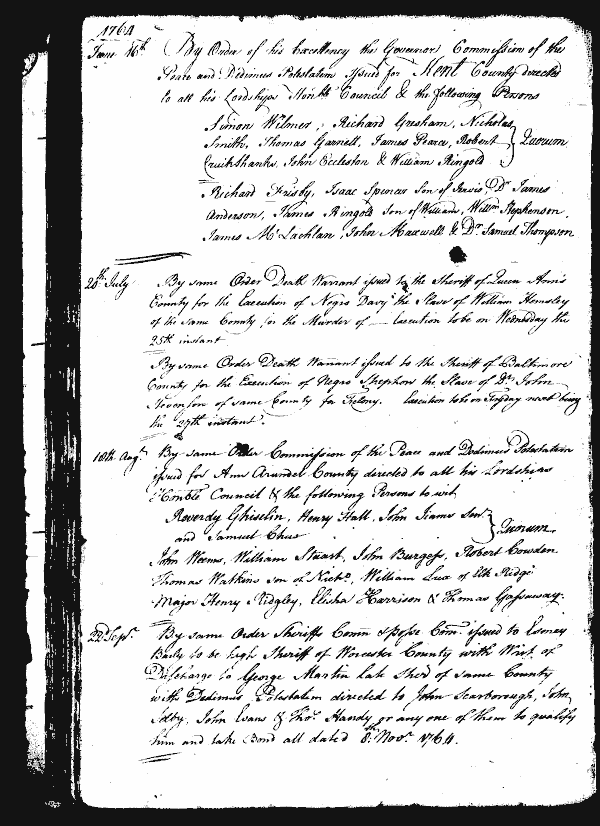 1764
June 16th By Order of his Excellency the Governor Commission of the
Peace and Dedimus Potestatem issued for Kent County directed
to all his Lordships Honble Council & the following Persons
Simon Wilmer, Richard Gresham, Nicholas
Smith, Thomas Garnett, James Pearce, Robert } Quorum
Cruikshanks, John Eccleston & William Ringold
Richard Frisby, Isaac Spencer Son of Jervis, Dr James
Anderson, James Ringold Son of William, Willm Stephenson,
James McLachlan, John Maxwell & Dr Samuel Thompson
20th July By same Order Death Warrant issued to the Sheriff of Queen Ann's
County for the Execution of Negro Davy the Slave of William Hemsley
of the Same County for the Murder of —— Execution to be on Wednesday the
25th instant
By same Order Death Warrant issued to the Sheriff of Baltimore
County for the Execution of Negro Stephen the Slave of Dr John
Stevenson of same County for Felony. Execution to be on Fryday next being
the 27th instant.
10th Augt By same Order Commission of the Peace and Dedimus Potestatem
issued for Ann Arundel County directed to all his Lordships
Honble Council & the following Persons to wit
Reverdy Ghiselin, Henry Hall, John Senr } Quorum
and Samuel Chew
John Weems, William Stuart, John Burgess, Robert Cowden
Thomas Watkins son of Nichs, William Lux of Elk Ridge
Major Henry Ridgley, Elisha Harrison & Thomas Gassaway.
22d Sepr By same Order Sheriffs Comn & posse Com. issued to Esme
Bayly to be high Sheriff of Worcester County with Writ of
Discharge to George Martin late Sher of same County
with Dedimus Potestatem directed to John Scarborough, John
Selby, John Evans & Thos Handy or any one of them to qualify
him and take Bond all dated 8th Novr 1764.